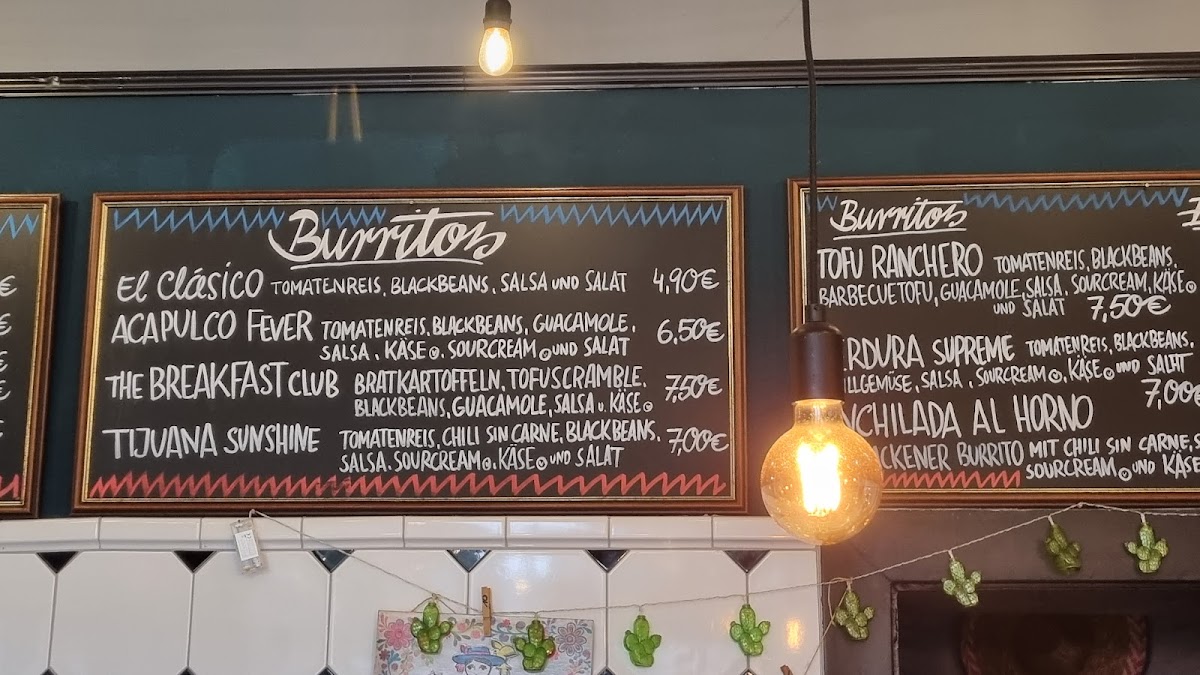 Burritos
El Clásico TOMATENREIS, BLACKBEANS, SALSA UND SALAT 4,90€
ACAPULCO FEVER TOMATENREIS, BLACKBEANS, GUACAMOLE, 6,50€
SALSA, KÄSE, SOURCREAM UND SALAT
THE BREAKFAST CLUB BRATKARTOFFELN, TOFUSCRAMBLE, 7,50€
BLACKBEANS, GUACAMOLE, SALSA u. KÄSE
TIJUANA SUNSHINE TOMATENREIS, CHILI SIN CARNE, BLACKBEANS, 7,00€
SALSA, SOURCREAM, KÄSE UND SALAT
Burritos
TOFU RANCHERO TOMATENREIS, BLACKBEANS,
BARBECUETOFU, GUACAMOLE, SALSA, SOURCREAM, KÄSE
UND SALAT 7,50€
ERDURA SUPREME TOMATENREIS, BLACKBEANS,
LLGEMÜSE, SALSA, SOURCREAM, KÄSE UND SALAT
7,00€
NCHILADA AL HORNO
ACKENER BURRITO MIT CHILI SIN CARNE,
SOURCREAM UND KÄSE